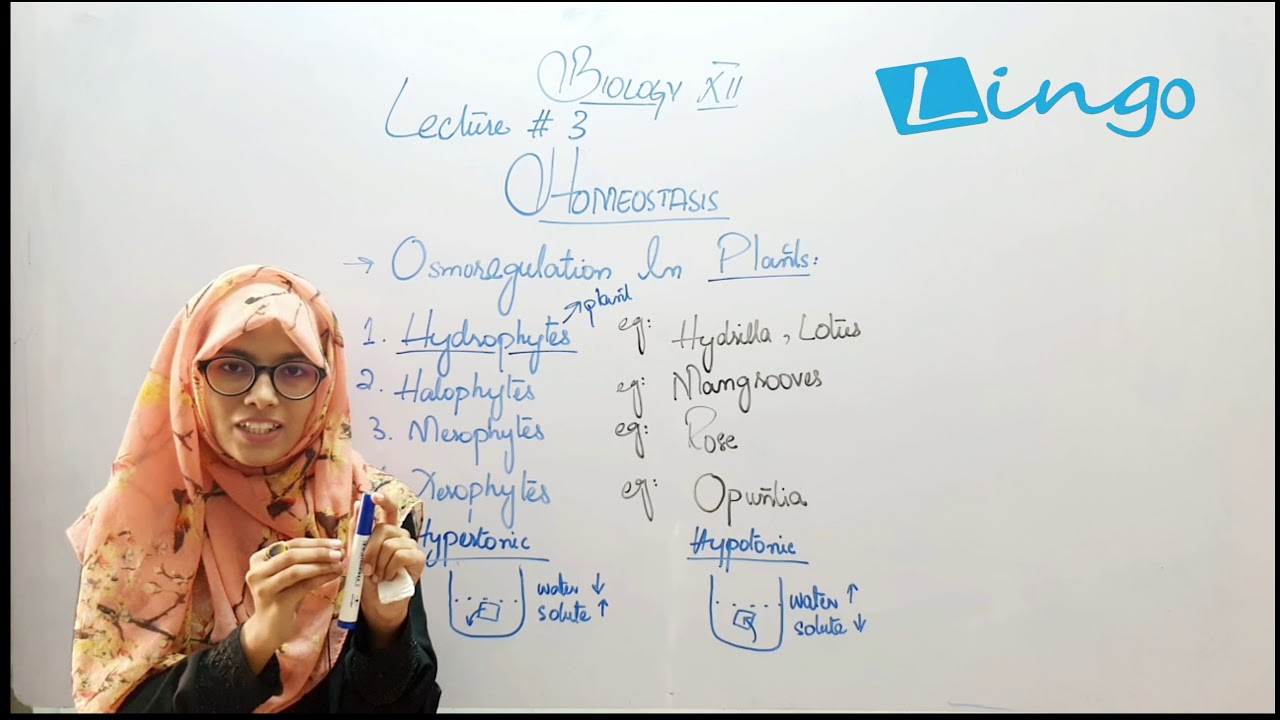 Lingo
Biology XII
Lecture # 3
Homeostasis
→ Osmoregulation In Plants:
1. Hydrophytes → plant eg: Hydrilla, Lotus
2. Halophytes eg: Mangrooves
3. Mesophytes eg: Rose
Xerophytes eg: Opuntia
Hypertonic Hypotonic
water ↓ water ↑
solute ↑ solute ↓